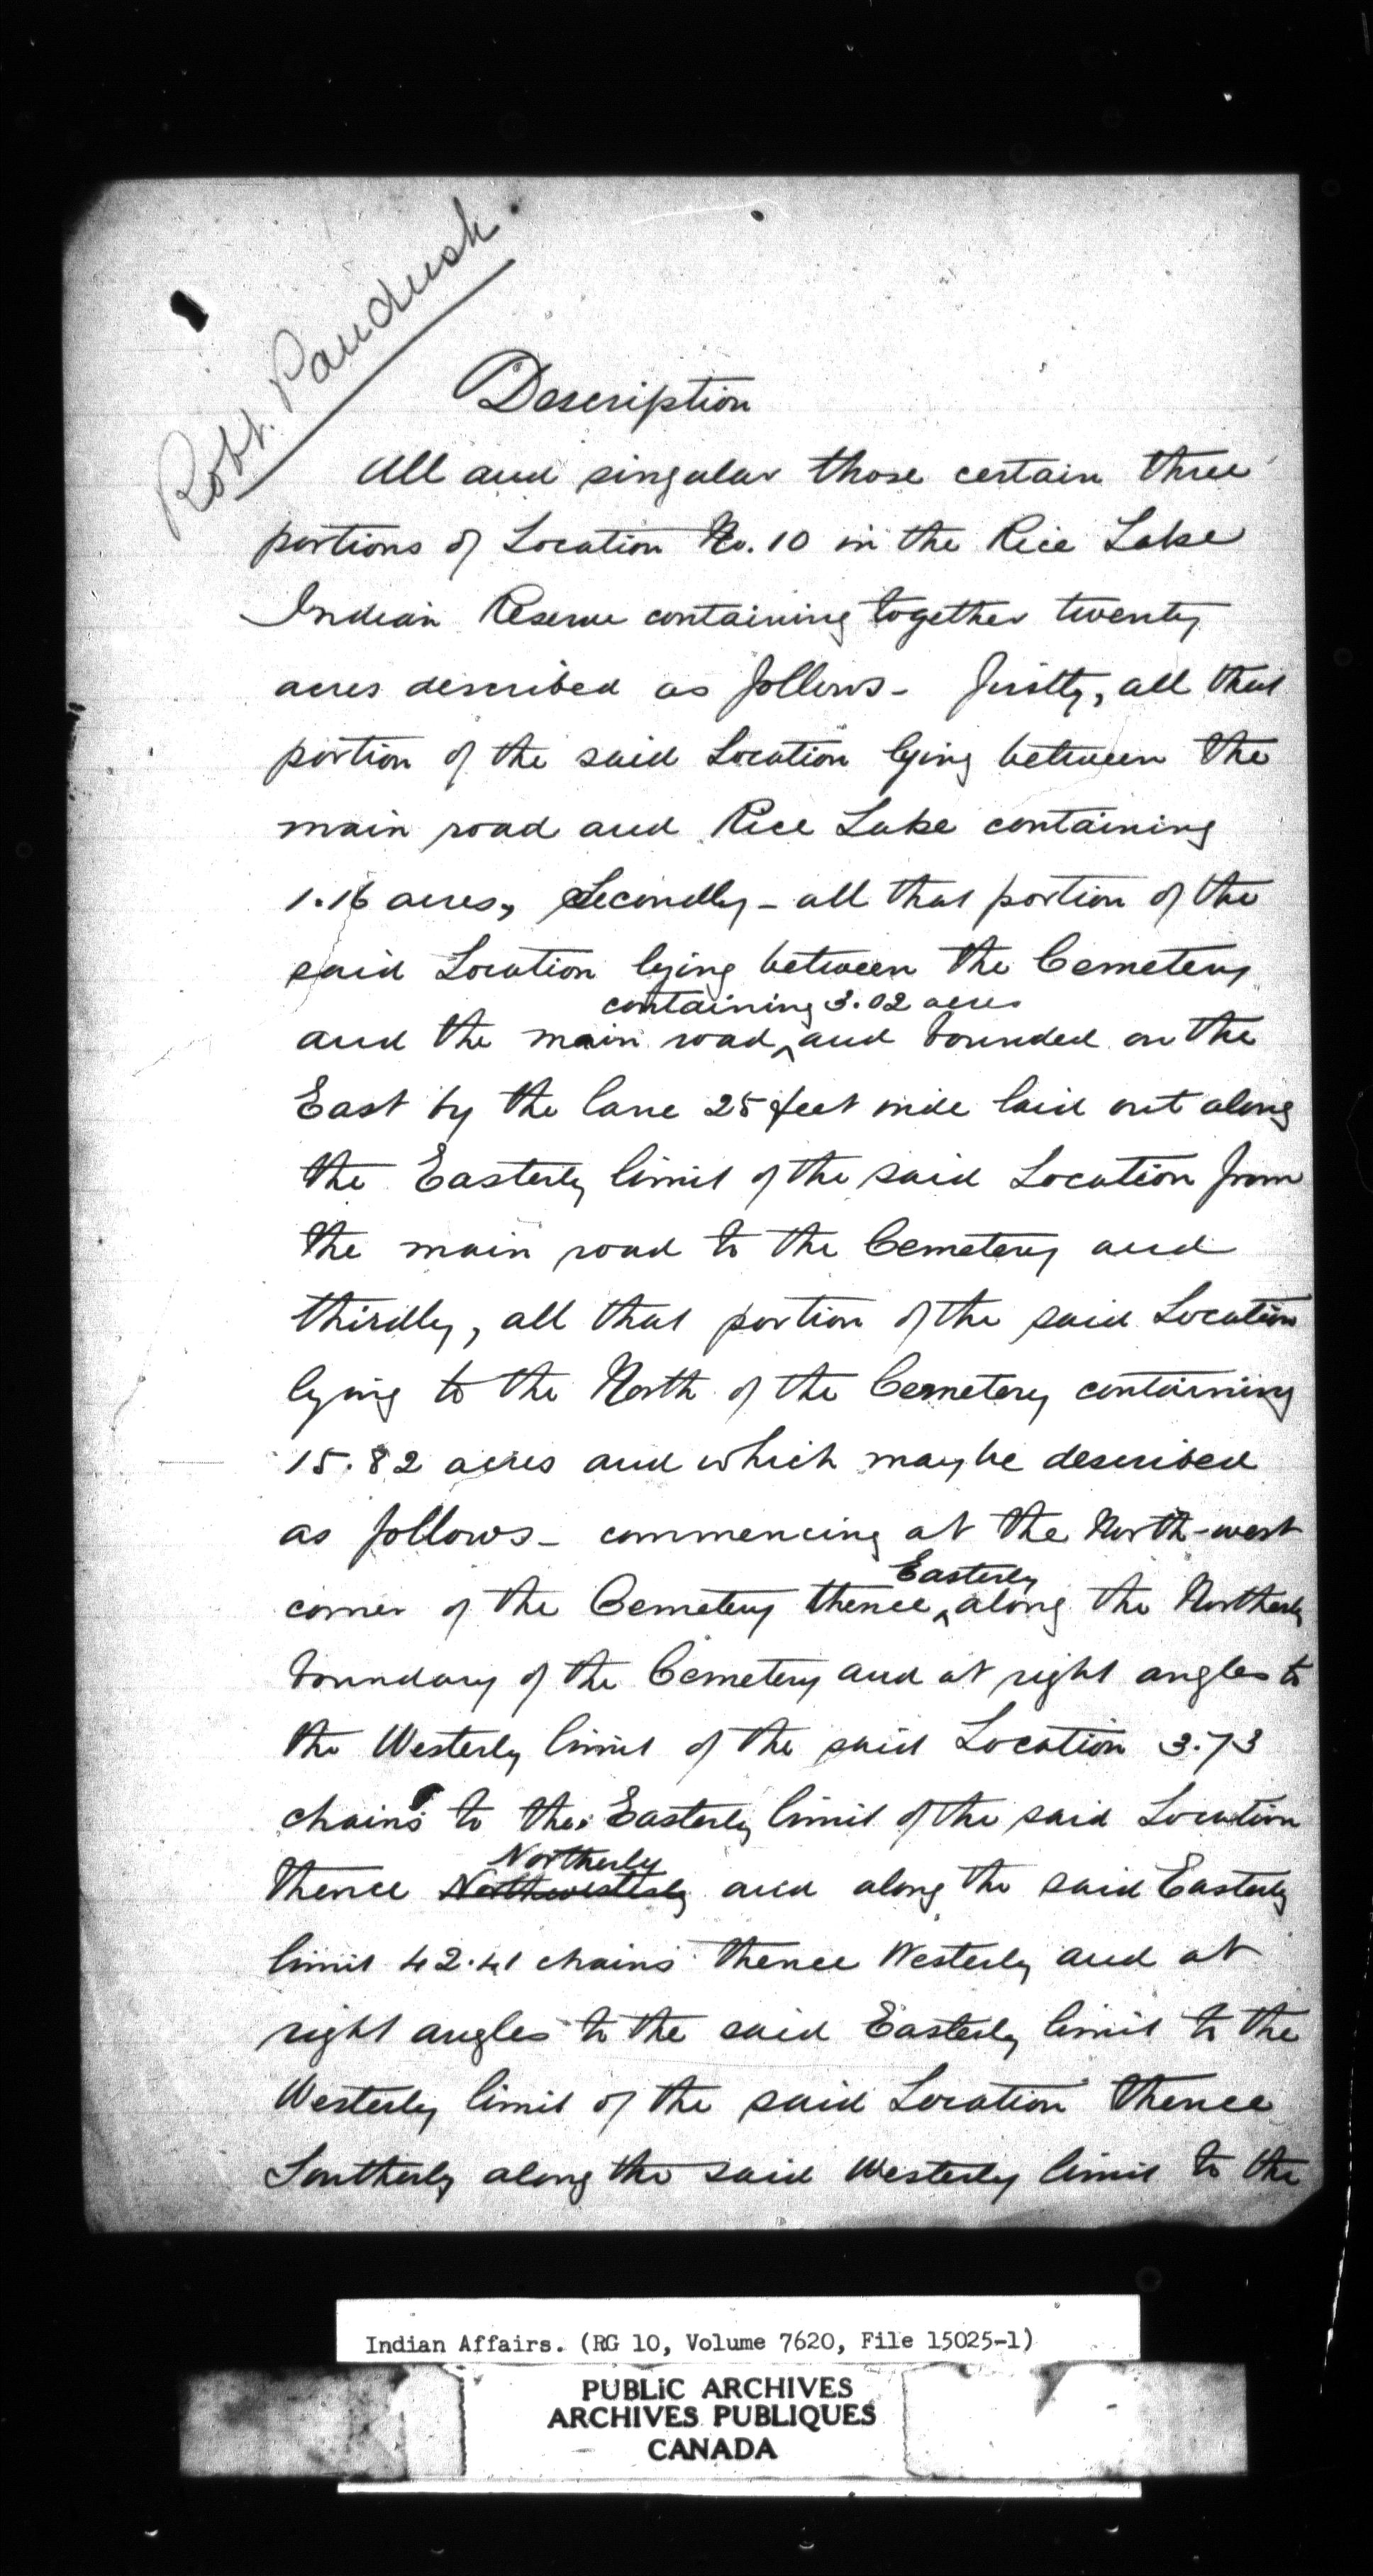 Robt. Paudash
Description
All and singular those certain three
portions of Location No. 10 in the Rice Lake
Indian Reserve containing together twenty
acres described as follows - firstly, all that
portion of the said Location lying between the
main road and Rice Lake containing
1.16 acres, Secondly - all that portion of the
said Location lying between the Cemetery
containing 3.02 acres
and the main road ^ and bounded on the
East by the lane 25 feet wide laid out along
the Easterly limit of the said Location from
the main road to the Cemetery and
thirdly, all that portion of the said Location
lying to the North of the Cemetery containing
15.82 acres and which may be described
as follows - commencing at the North-west
Easterly
corner of the Cemetery thence ^ along the Northerly
boundary of the Cemetery and at right angles to
the Westerly limit of the said Location 3.73
chains to the Easterly limit of the said Location
Northerly
thence Northwesterly and along the said Easterly
limit 42.41 chains thence Westerly and at
right angles to the said Easterly limit to the
Westerly limit of the said Location thence
Southerly along the said Westerly limit to the
Indian Affairs. (RG 10, Volume 7620, File 15025-1)
PUBLIC ARCHIVES
ARCHIVES PUBLIQUES
CANADA